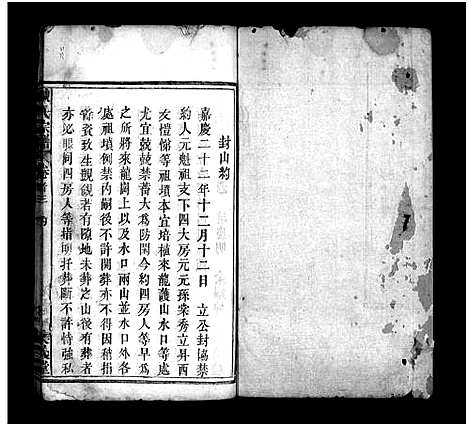 封山約
嘉慶二十二年十二月十二日　立公封協禁
約人元魁祖支下四大房元元孫棠秀立昇酉
友愷傛等祖墳本宜培植來龍護山水口等處
尤宜兢兢禁蓄大為防閑今約四房人等早為
之所將來龍岡上以及水口兩山並水口外各
處祖墳例禁內嗣後不許開葬都不許藉稍
吝資致生覬覦若有隙地未葬之山後有葬者
亦必眼同四房人等措明扦葬斷不許恃強私
氏宗譜